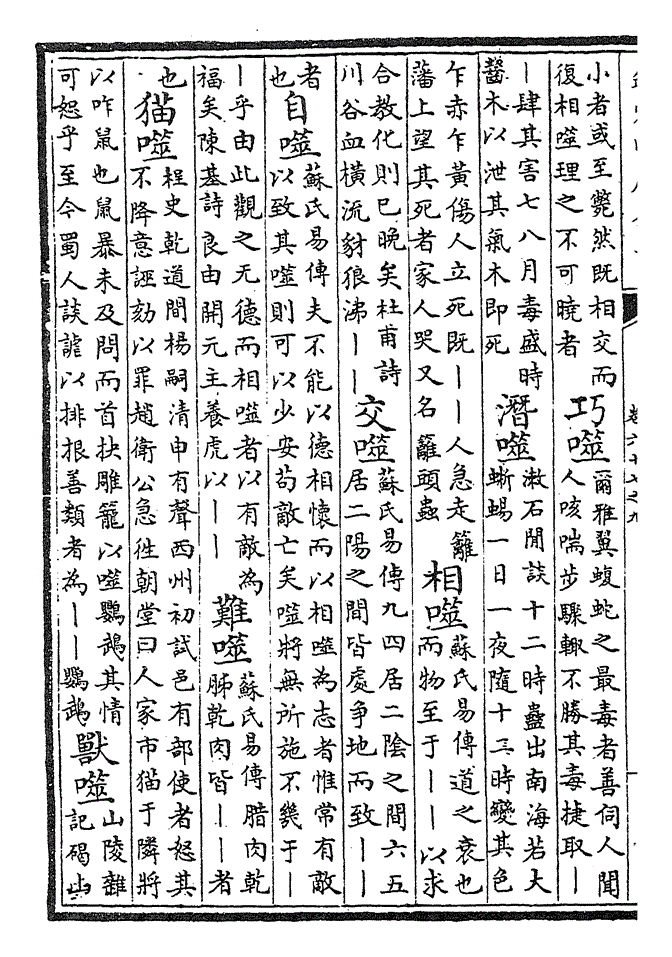 小者或至斃然既相交而
復相噬理之不可曉者
巧噬
爾雅翼蝮蛇之最毒者善伺人聞
人咳喘步驟輒不勝其毒捷取丨
丨肆其害七八月毒盛時
齧木以泄其氣木即死
潛噬
漱石閒談十二時蟲出南海若大
蜥蜴一日一夜隨十二時變其色
乍赤乍黃傷人立死既丨丨人急走籬
藩上望其死者家人哭又名籬頭蟲
相噬
蘇氏易傳道之衰也
而物至于丨丨以求
合教化則已晚矣杜甫詩
川谷血橫流豺狼沸丨丨
交噬
蘇氏易傳九四居二陰之間六五
居二陽之間皆處爭地而致丨丨
者
也
自噬
蘇氏易傳夫不能以德相懷而以相噬為志者惟常有敵
以致其噬則可以少安苟敵亡矣噬將無所施不幾于丨
丨乎由此觀之无德而相噬者以有敵為
福矣陳基詩良由開元主養虎以丨丨
難噬
蘇氏易傳腊肉乾
胏乾肉皆丨丨者
也
猫噬
桯史乾道間楊嗣清申有聲西州初試邑有部使者怒其
不降意誣劾以罪趙衛公急徃朝堂曰人家市猫于隣將
以咋鼠也鼠暴未及問而首抉雕籠以噬鸚鵡其情
可恕乎至今蜀人談謔以排根善類者為丨丨鸚鵡
獸噬
山陵雜
記碣山